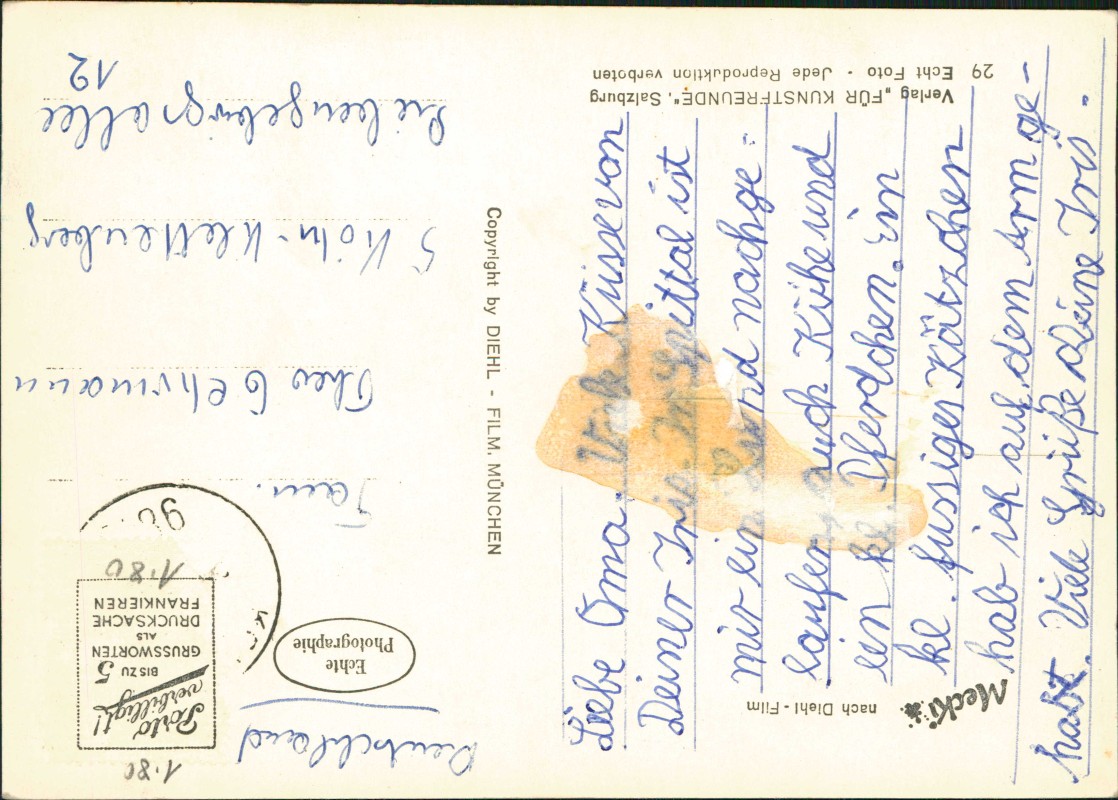 Liebe Oma. Viele Küsse von
Deiner Iris. In Spittal ist
mir ein Hund nachge=
laufen auch Kühe und
ein kl. Pferdchen. Ein
kl. fussiges Kätzchen
hab ich auf dem Arm ge-
habt. Viele Grüße Deine Iris.
Mecki
nach Diehl-Film
Verlag „FÜR KUNSTFREUNDE", Salzburg
29 Echt Foto - Jede Reproduktion verboten
Copyright by DIEHL - FILM. MÜNCHEN
Echte
Photographie
1.80
Porto
verbilligt!
BIS ZU 5
GRUSSWORTEN
ALS
DRUCKSACHE
FRANKIEREN
1.80
Deutschland
Fam.
Theo Gehrmann
5 Köln-Klettenberg
Siebengebirgsallee
12